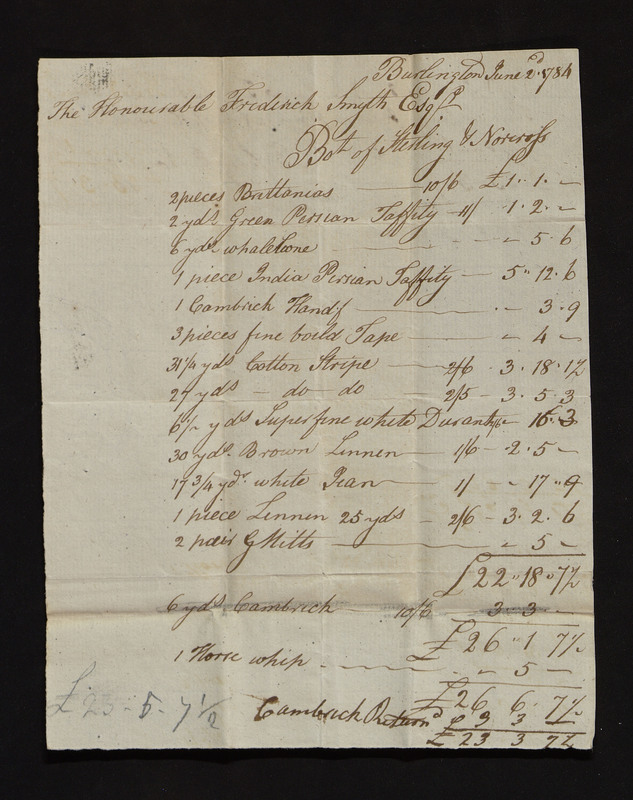 Burlington June 2d. 1784
The Honourable Frederick Smyth Esqr
Bot of Sterling & Norcross
2 pieces Brittanias 10/6 £1.. 1.. –
2 yds. Green Persian Taffity 11/ 1. 2. –
6 yds whalebone – 5. 6
1 piece India Persian Taffity 5" 12. 6
1 Cambrick Handf 3. 9
3 pieces fine boild Tape – 4 –
31 1/4 yds Cotton Stripe 2/6. 3. 18. 1½
27 yds – do – do 2/5 – 3. 5. 3
6½ yds Superfine white Durant 2/6 – 16. 3
30 yds. Brown Linnen 1/6 – 2. 5 –
17 3/4 yds. white Jean 1/ – 17. 9
1 piece Linnen 25 yds – 2/6 – 3. 2. 6
2 pair G Mitts – 5 –
£22" 18" 7½
6 yds Cambrick – 10/6 3.. 3.. –
£26" 1 7½
1 Horse whip – – 5 –
£26 6. 7½
Cambrick Returnd £3 3
£23 3 7½
£23 – 5 – 7 1/2